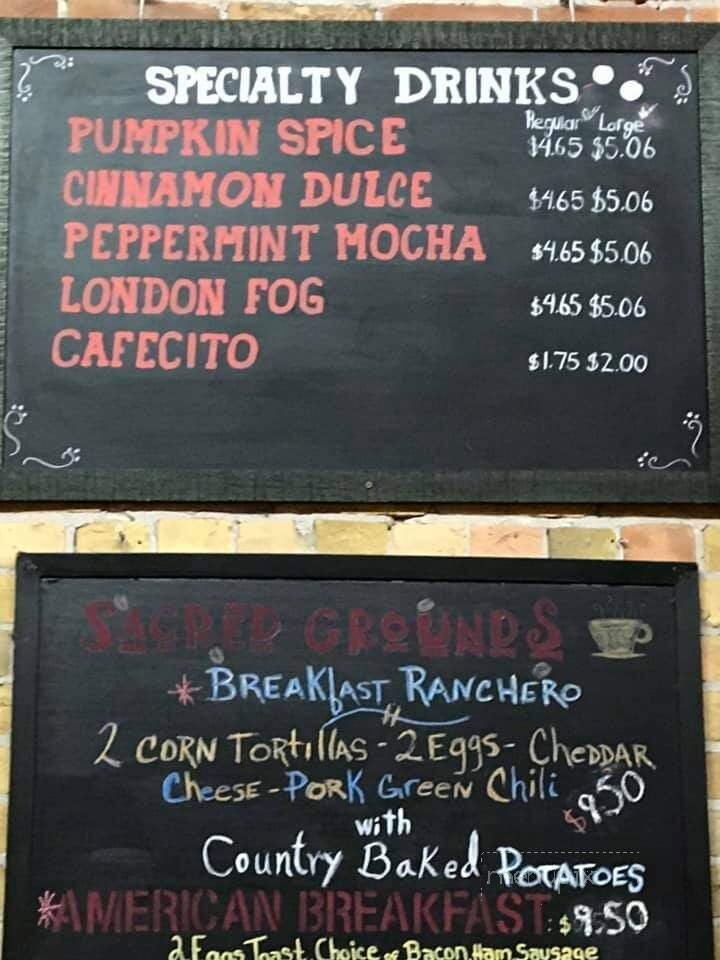 SPECIALTY DRINKS
Regular Large
PUMPKIN SPICE $4.65 $5.06
CINNAMON DULCE $4.65 $5.06
PEPPERMINT MOCHA $4.65 $5.06
LONDON FOG $4.65 $5.06
CAFECITO $1.75 $2.00
SACRED GROUNDS
* BREAKfAST RANCHERO
2 CORN TORTillAS - 2 Eggs - CheDDAR
CheeSE - PORK GreeN Chili $9.50
with
Country Baked POTATOES
*AMERICAN BREAKFAST: $9.50
2 Eggs Toast Choice of Bacon, Ham, Sausage